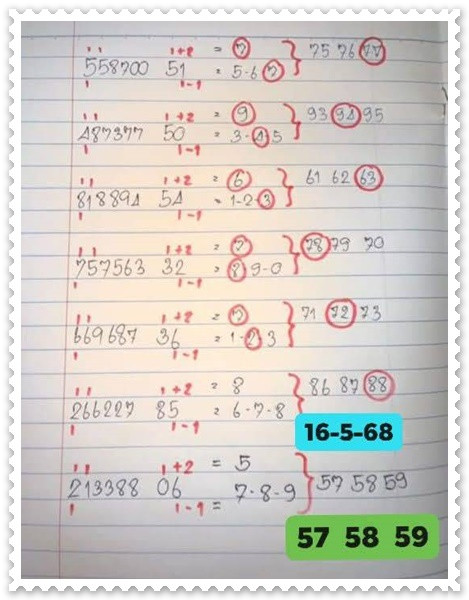 1+2 = 7
558700 51 = 5-6 7 75 76 77
1-1
1+2 = 9
487377 50 = 3-4 5 93 94 95
1-1
1+2 = 6
818894 54 = 1-2-3 61 62 63
1-1
1+2 = 7
757563 32 = 8 9-0 78 79 70
1-1
1+2 = 7
669687 36 = 1-2 3 71 72 73
1-1
1+2 = 8
266227 85 = 6-7-8 86 87 88
1-1
16-5-68
1+2 = 5
213388 06 7-8-9 57 58 59
1-1 =
57 58 59